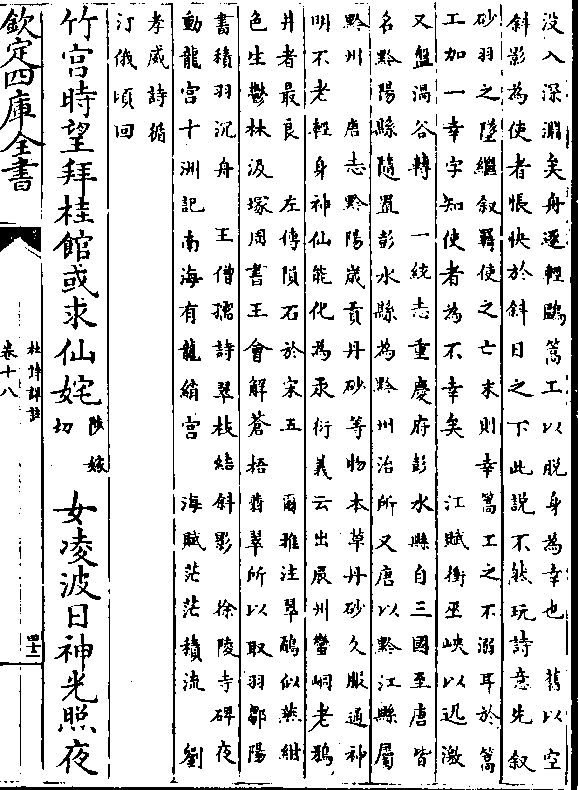 没入深淵矣舟逐輕鷗篙工以脱身為幸也　舊以空
斜影為使者悵怏於斜日之下此説不然玩詩意先叙
砂羽之墜繼叙羇使之亡末則幸篙工之不溺耳於篙
工加一幸字知使者為不幸矣　江賦衝巫峽以迅激
又盤渦谷轉　一統志重慶府彭水縣自三國至唐皆
名黔陽縣隨置彭水縣為黔州治所又唐以黔江縣屬
黔州　唐志黔陽歳貢丹砂等物本草丹砂久服通神
明不老輕身神仙能化為汞衍義云出辰州蠻峒老鴉
井者最良　左傳隕石於宋五　爾雅注翠鷸似燕紺
色生鬱林汲塚周書王會解蒼梧翡翠所以取羽鄒陽
書積羽沉舟　王僧孺詩翠枝結斜影　徐陵寺碑夜
動龍宫十洲記南海有龍綃宫　海賦茫茫積流　劉
孝威詩循
汀俄頃回
竹宫時望拜桂館或求仙姹陟嫁切女凌波日神光照夜
欽定四庫全書
杜詩詳註
卷十八
四十二